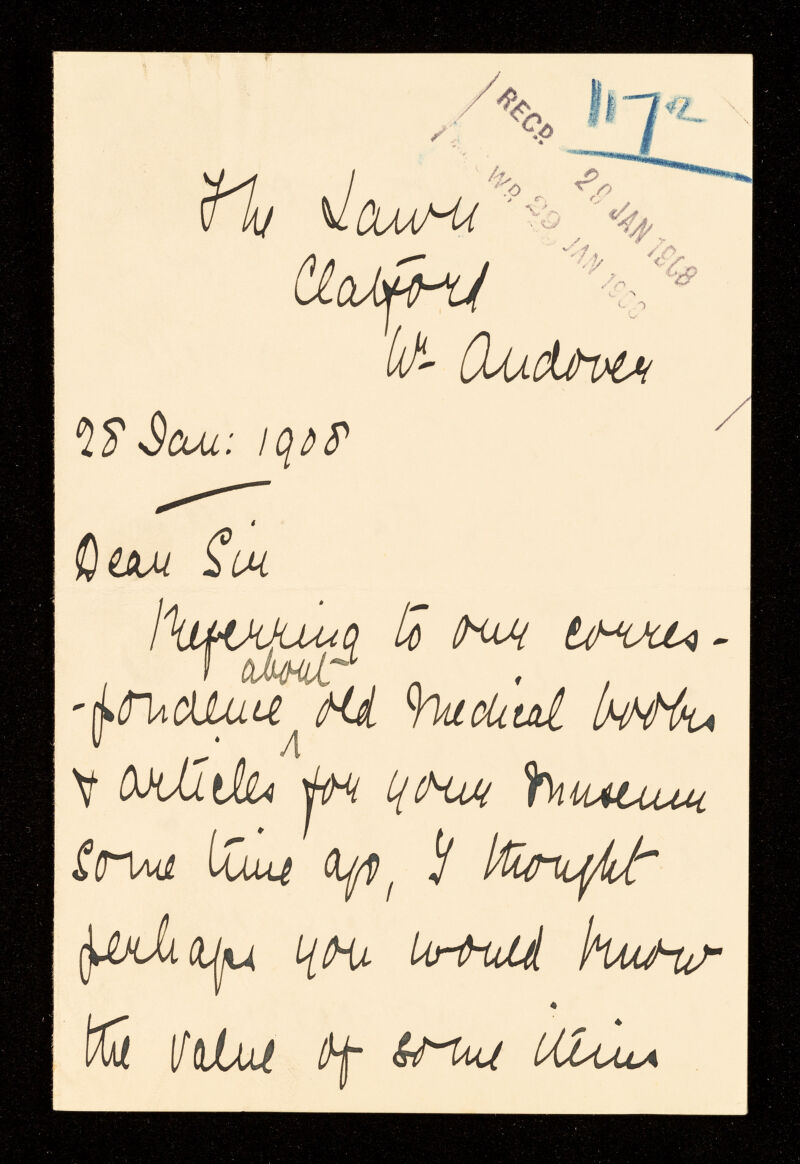 1172
RECD 29 JAN 1908
WR 29 JAN 1908
The Lawn
Clatford
Nr Andover
28 Jan: 1908
Dear Sir
Referring to our corres-
about
-pondence ^ old Medical books
& articles for your Museum
some time ago, I thought
perhaps you would know
the value of some items